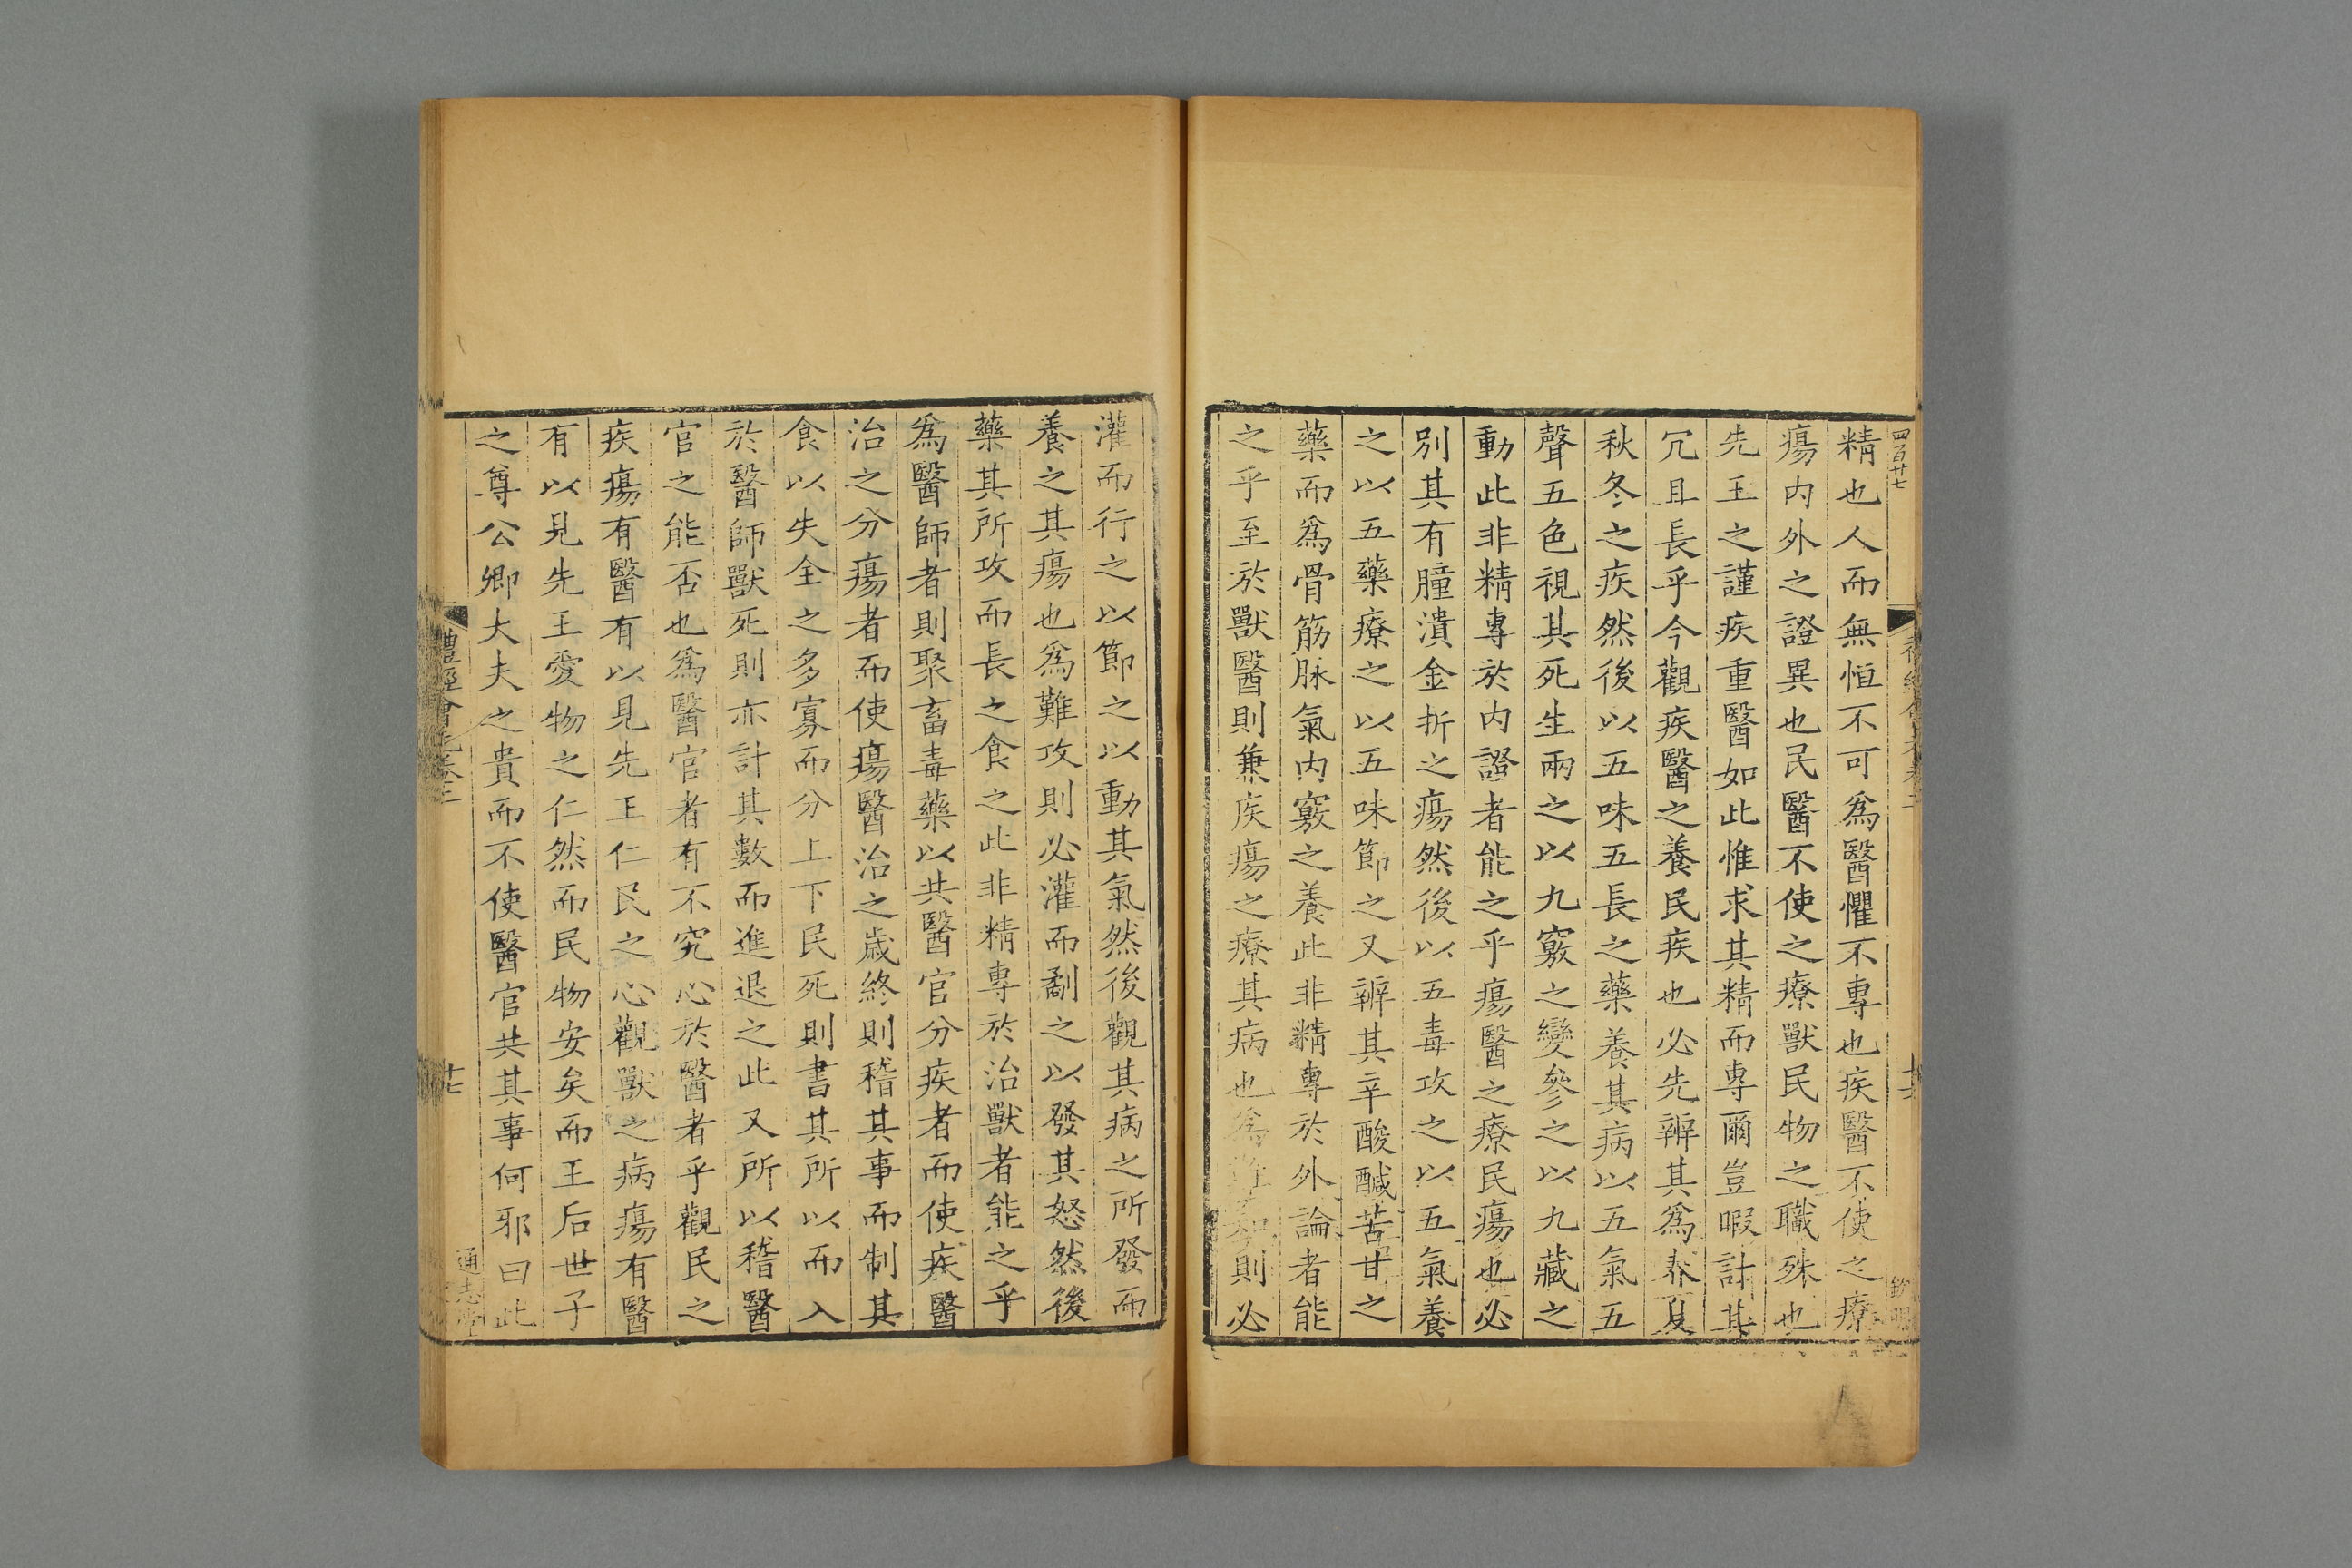 四百廿七
精也人而無恒不可爲醫懼不專也疾醫不使之療
瘍内外之證異也民醫不使之療獸民物之職殊也
先王之謹疾重醫如此惟求其精而專爾豈暇計其
冗且長乎今觀疾醫之養民疾也必先辨其爲春夏
秋冬之疾然後以五味五長之藥養其病以五氣五
聲五色視其死生兩之以九竅之變參之以九藏之
動此非精專於内證者能之乎瘍醫之療民瘍也必
別其有腫潰金折之瘍然後以五毒攻之以五氣養
之以五藥療之以五味節之又辨其辛酸醎苦甘之
藥而爲骨筋脉氣内竅之養此非精專於外論者能
之乎至於獸醫則兼疾瘍之療其病也爲難知則必
灌而行之以節之以動其氣然後觀其病之所發而
養之其瘍也爲難攻則必灌而劀之以發其怒然後
藥其所攻而長之食之此非精專於治獸者能之乎
爲醫師者則聚畜毒藥以共醫官分疾者而使疾醫
治之分瘍者而使瘍醫治之歲終則稽其事而制其
食以失全之多寡而分上下民死則書其所以而入
於醫師獸死則亦計其數而進退之此又所以稽醫
官之能否也爲醫官者有不究心於醫者乎觀民之
疾瘍有醫有以見先王仁民之心觀獸之病瘍有醫
有以見先王愛物之仁然而民物安矣而王后世子
之尊公卿大夫之貴而不使醫官共其事何邪曰此
禮經會元卷三
十七
通志堂